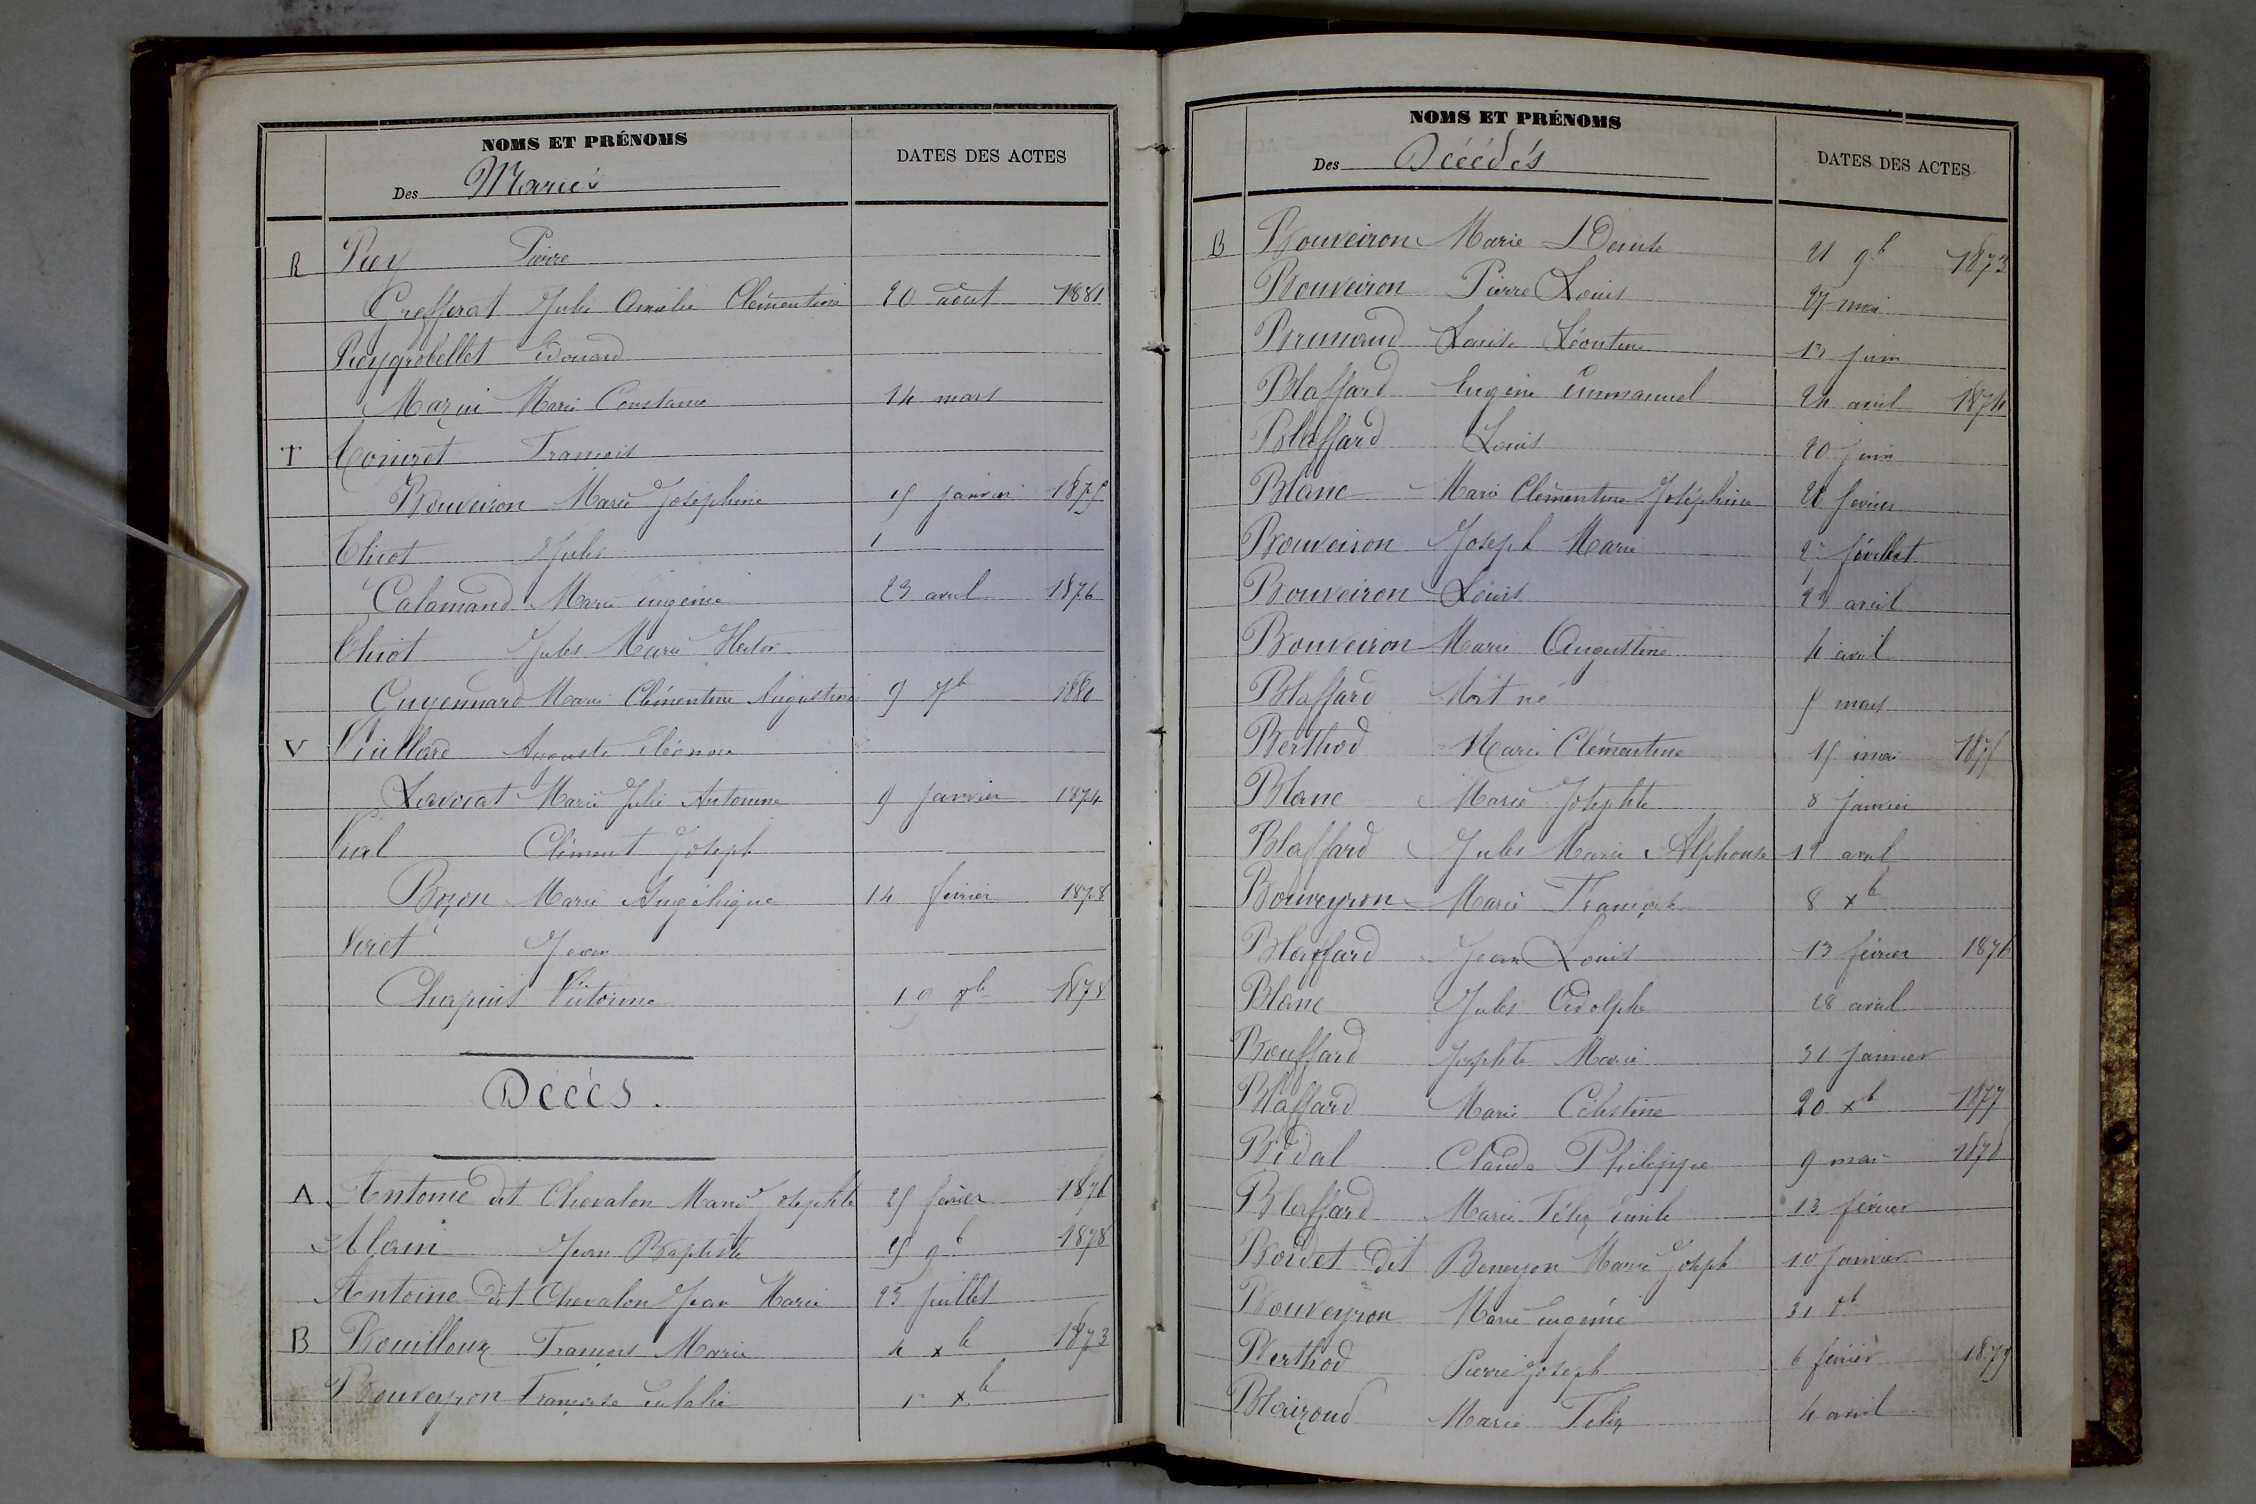 NOMS ET PRÉNOMS
Des Mariés
DATES DES ACTES
R Rey Pierre
Grefferat Julie Amélie Clémentine 20 août 1881
Reygrobellet Edouard
Marie Constance 14 mars
T François
Bouveiron Marie Joséphine 15 janvier 1875
Thiot Jules
Calamand Marie eugénie 23 avril 1876
Thiot Jules Marie Hector
Guyennard Marie Clémentine Augustine 9 7b 1880
V Viallard Auguste Eléonor
Lavocat Marie Julie Antoinine 9 janvier 1874
Vial Clément Joseph
Bozon Marie Angélique 14 février 1878
Viret Jean
Chapuis Victorine 1878
Décès.
A Antoine dit Chevalon Marie Josephte 25 février 1876
Alain Jean Baptiste 25 9b 1878
Antoine dit Chevalon Jean Marie 23 juillet
B Bouilloux François Marie 4 xb 1873
Bouveyron Françoise Eulalie xb
NOMS ET PRÉNOMS
Des Décédés
DATES DES ACTES
B Bouveiron Marie 21 9b 1873
Bouveiron Pierre Louis 27 mai
Brunaud Louise Léontine 13 juin
Blaffard Eugène Emmanuel 24 avril 1874
Blaffard Louis 20 juin
Blanc Marie Clémentine Joséphine février
Bouveiron Joseph Marie juillet
Bouveiron Louis avril
Bouveiron Marie Augustine 4 avril
Blaffard Mort né 5 mars
Berthod Marie Clémentine 15 mai 1875
Blanc Marie Josephte 8 janvier
Blaffard Jules Marie Alphonse avril
Bouveyron Marie 8 xb
Blaffard Jean Louis 13 février 1876
Blanc Jules Adolphe 28 avril
Bouffard Josephte Marie 31 janvier
Blaffard Marie Célestine 20 xb 1877
Bidal Claude Philippe 9 mai 1878
Blaffard Marie Félix Emile 13 février
dit Beneyon Marie Joseph 10 janvier
Bouveyron Marie eugénie 31
Berthod Pierre Joseph 6 février 1879
Marie Félix 4 avril